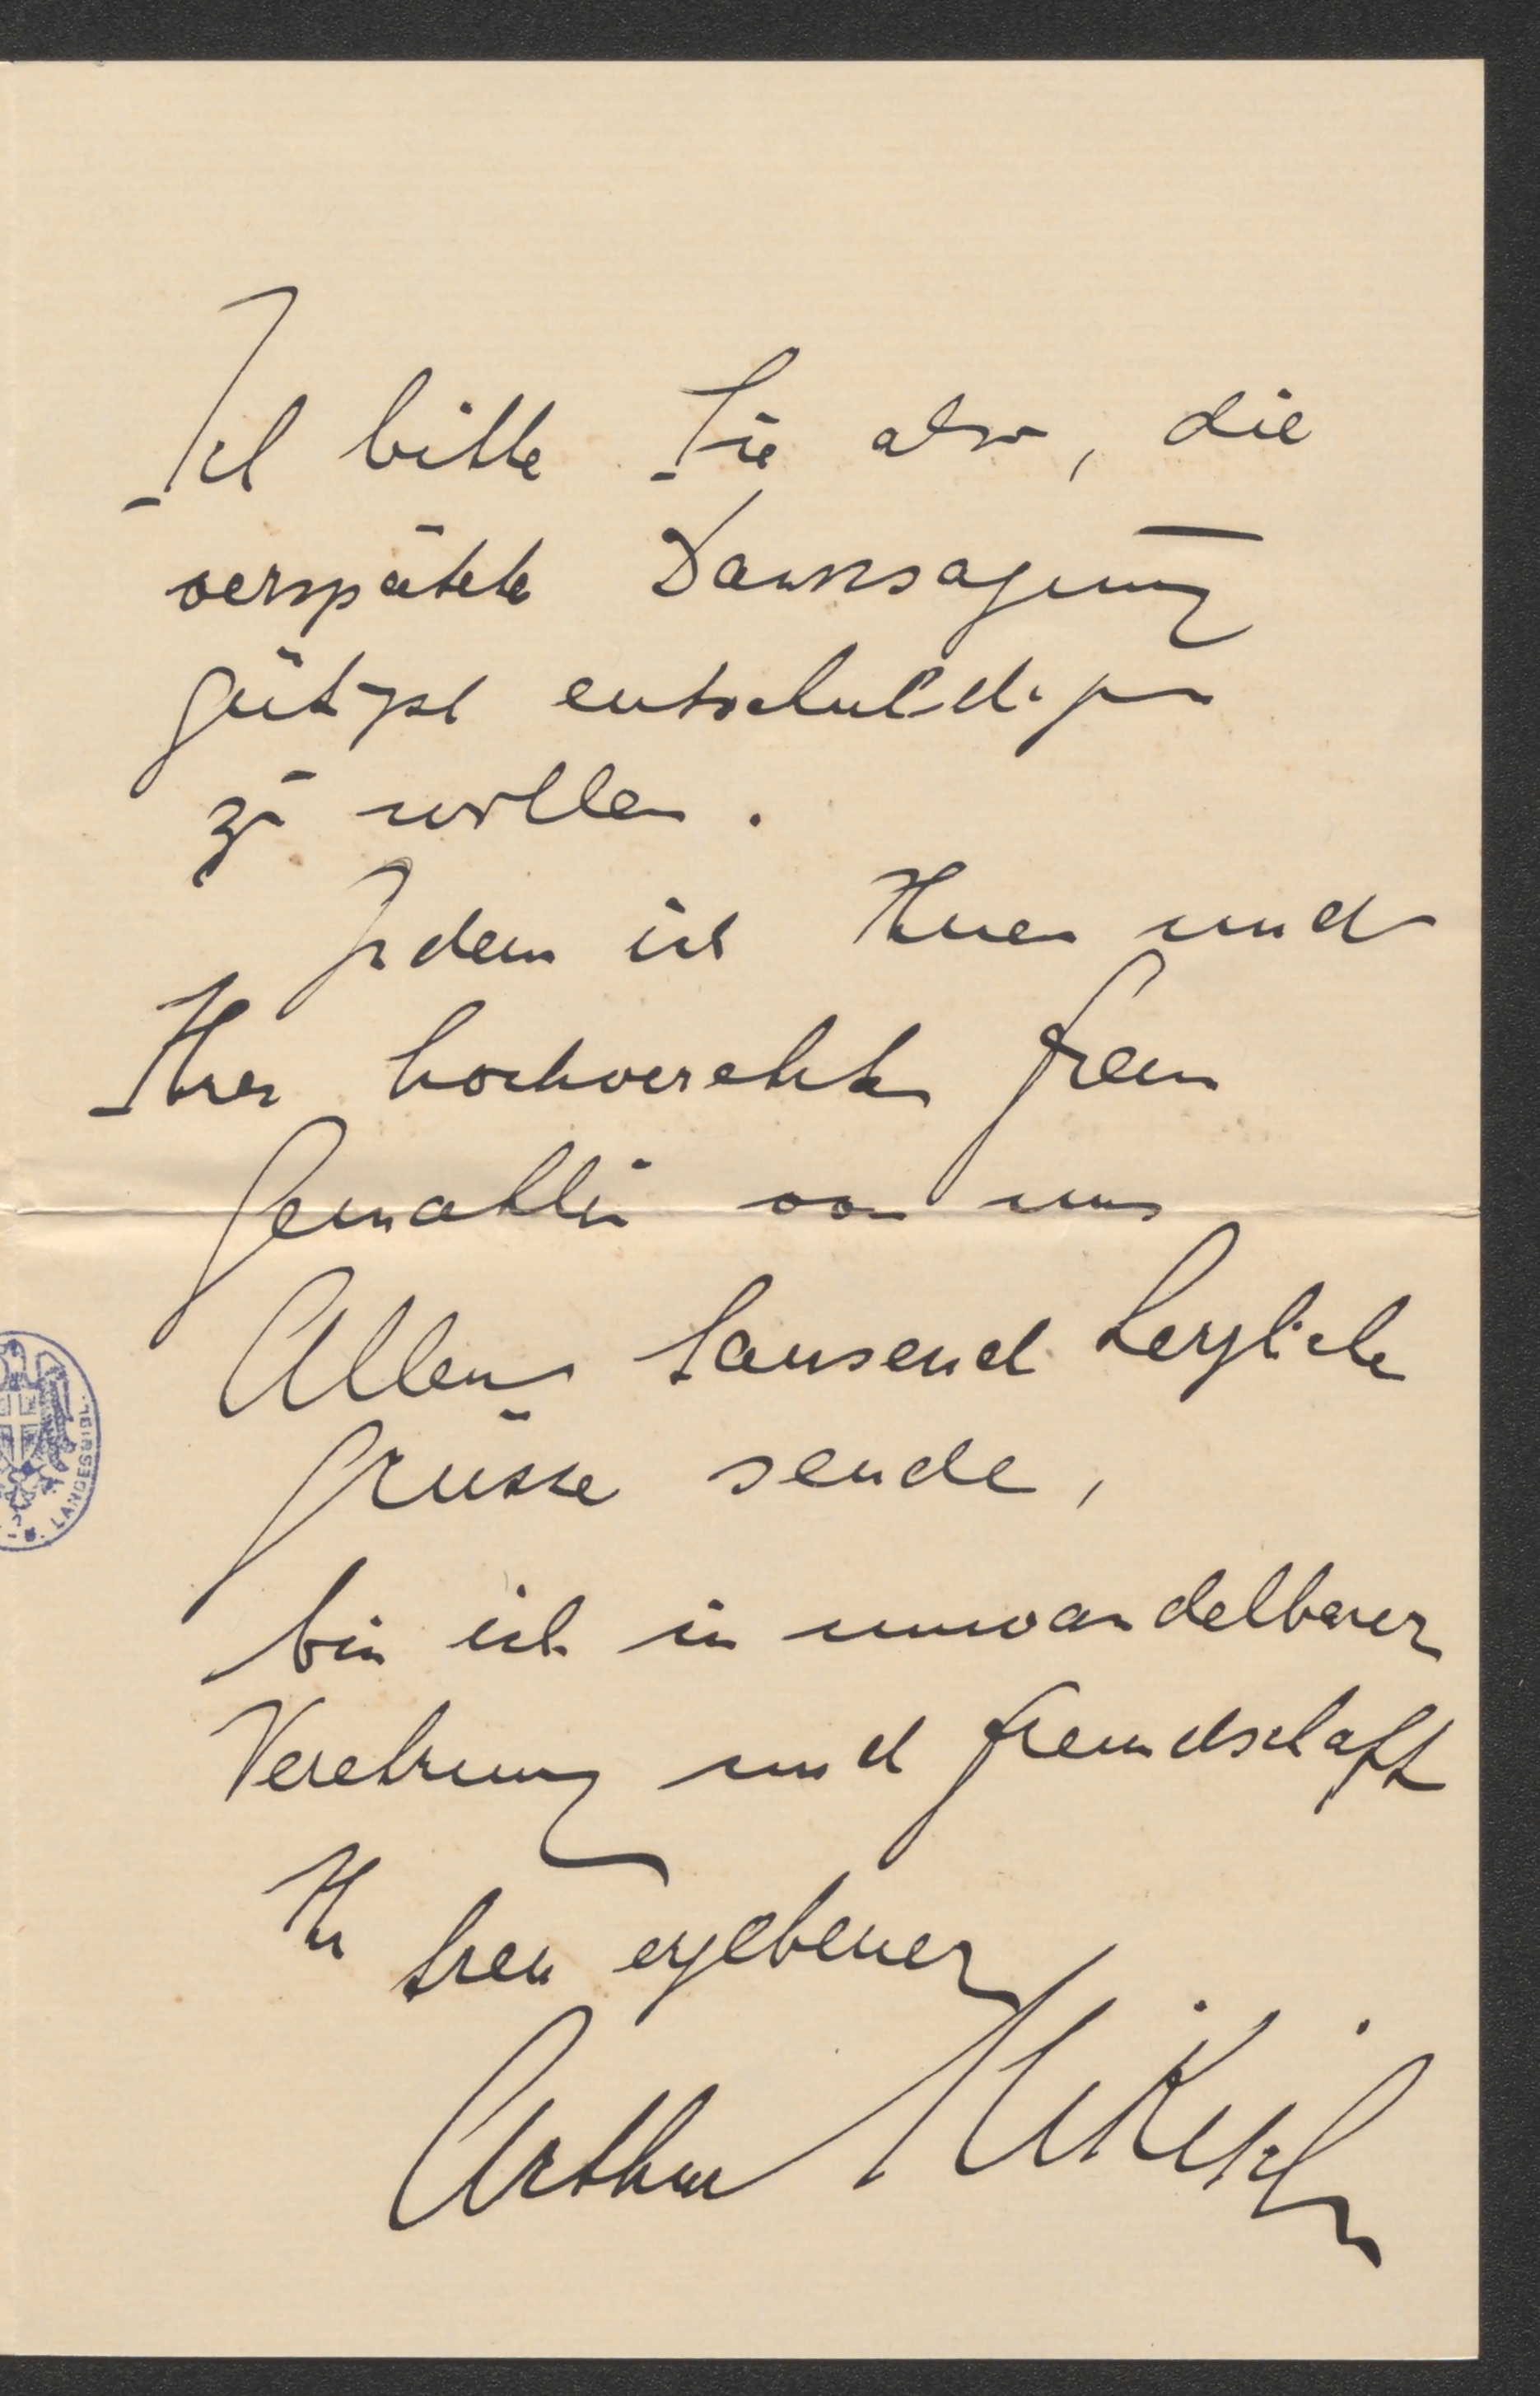 Ich bitte Sie also, die
verspätete Danksagung
gütigst entschuldigen
zu wollen.
Indem ich Ihnen und
Ihrer hochverehrten Frau
Gemahlin von uns
Allen tausend herzliche
Grüsse sende,
bin ich in unwandelbarer
Verehrung und Freundschaft
Ihr treu ergebener
Arthur Nikisch
LANDESBIBL.